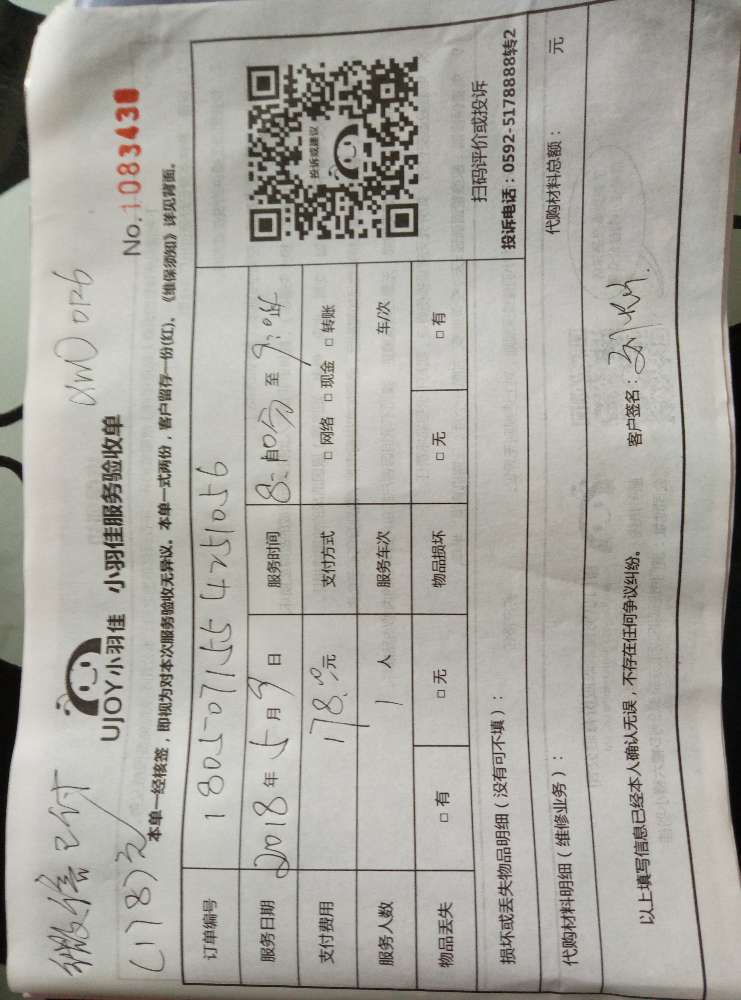 微信已付
(178)元
UJOY小羽佳 小羽佳服务验收单
No.1083438
本单一经核签，即视为对本次服务验收无异议。本单一式两份，客户留存一份(红)。《维保须知》详见背面。
订单编号 1805071554251056
服务日期 2018年5月9日 服务时间 8:10分至9:04
支付费用 178.00元 支付方式 □网络 □现金 □转账
服务人数 1人 服务车次 车/次
物品丢失 □有 □无 物品损坏 □无 □有
投诉或建议
扫码评价或投诉
投诉电话：0592-5178888转2
损坏或丢失物品明细（没有可不填）：
代购材料明细（维修业务）： 代购材料总额： 元
以上填写信息已经本人确认无误，不存在任何争议纠纷。 客户签名：